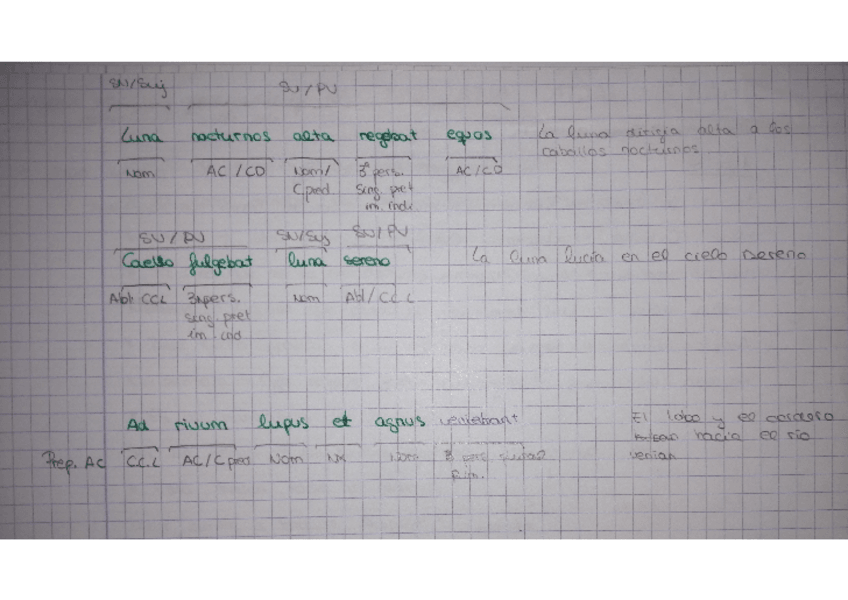 SN/Suj SV/PV
Luna nocturnos alta regebat equos La luna dirigía alta a los
caballos nocturnos
Nom AC/CD Nom/ 3ª pers. AC/CD
Cpred sing. pret
im. indi
SV/PV SN/Suj SV/PV
Caelo fulgebat luna sereno La luna lucía en el cielo sereno
Abl CCL 3ª pers. Nom Abl/CCL
sing. pret
im. ind
Ad rivum lupus et agnus veniebant El lobo y el cordero
hacia el río
Prep. AC CC.L AC/C pred Nom NX Nom 3 venían
p. im.